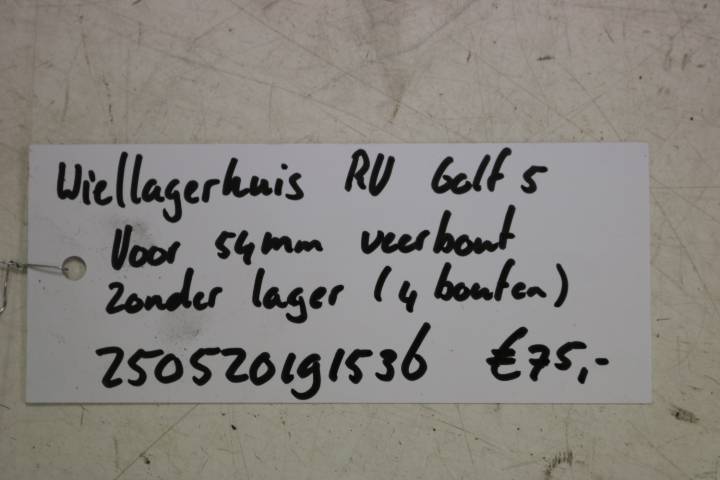 Wiellagerhuis RV Golf 5
Voor 54mm veerbout
Zonder lager (4 bouten)
250520191536 €75,-